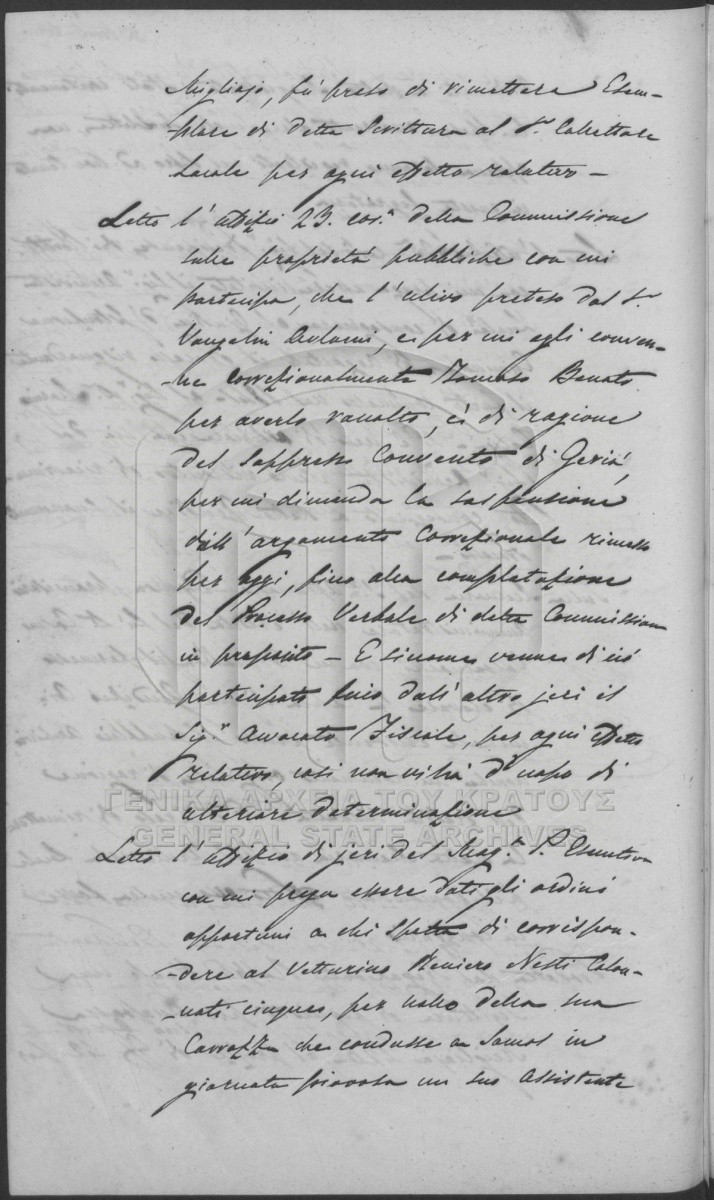 Migliajo, fù preso di rimettere Esem-
plare di detta Scrittura al Sr. Colettore
Locale per ogni effetto relativo –
Letto l'uffizio 23. cor.e della Commissione
sulle proprietà pubbliche con cui
partecipa, che l'ulivo preteso dal Sr.
Vangelin Avlami, e per cui egli conven-
ne Correzionalmente Tomaso Benato
per averlo raccolto, è di ragione
del soppresso Convento di Gerià,
per cui dimanda la sospensione
dall'argomento Correzionale rimesso
per oggi, fino alla completazione
del Processo Verbale di detta Commissione
in proposito – E siccome venne di ciò
partecipato fino dall'altro jeri il
Sig.r Avvocato Fiscale, per ogni effetto
relativo, così non vi hà d'uopo di
ulteriore determinazione
ΓΕΝΙΚΑ ΑΡΧΕΙΑ ΤΟΥ ΚΡΑΤΟΥΣ
GENERAL STATE ARCHIVES
Letto l'uffizio di jeri del Mag.to P. Esecutivo
con cui prega essere dati gli ordini
opportuni a chi spetta di corrispon-
dere al Vetturino Reniero Nesti Colon-
nati cinque, per nollo della sua
Carrozza che condusse a Samos in
giornata piovosa un suo Assistente